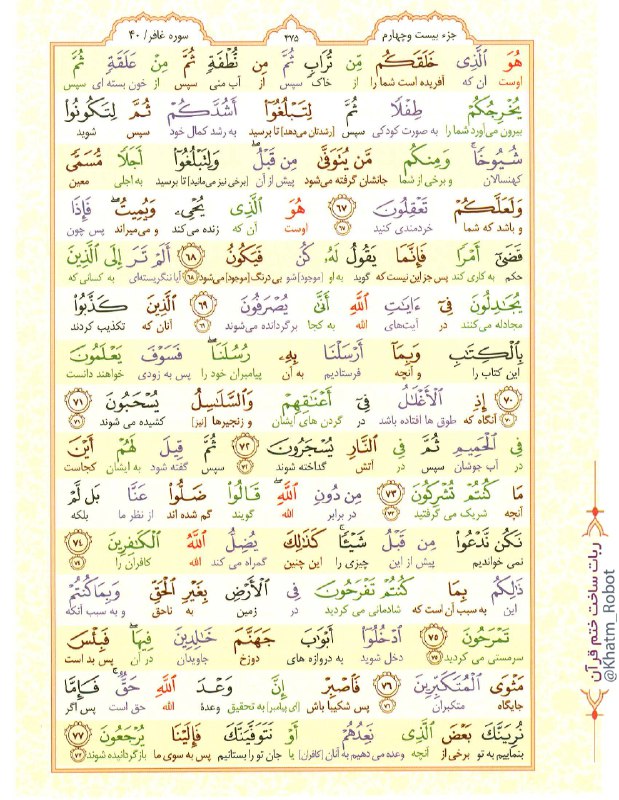 جزء بیست وچهارم
۴۷۵
سوره غافر / ۴۰
هُوَ ٱلَّذِی خَلَقَكُم مِّن تُرَابٍ ثُمَّ مِن نُّطْفَةٍ ثُمَّ مِنْ عَلَقَةٍ ثُمَّ
اوست آن که آفریده است شما را از خاک سپس از آب منی سپس از خون بسته ای سپس
یُخْرِجُكُمْ طِفْلًا ثُمَّ لِتَبْلُغُوٓا۟ أَشُدَّكُمْ ثُمَّ لِتَكُونُوا۟
بیرون می‌آورد شما را به صورت کودکی سپس [رشدتان می‌دهد] تا برسید به رشد کمال خود سپس شوید
شُیُوخًا وَمِنكُم مَّن یُتَوَفَّىٰ مِن قَبْلُ وَلِتَبْلُغُوٓا۟ أَجَلًا مُّسَمًّى
کهنسالان و برخی از شما جانشان گرفته می‌شود پیش از آن [برخی نیز می‌مانید] تا برسید به اجلی معین
وَلَعَلَّكُمْ تَعْقِلُونَ ۶۷ هُوَ ٱلَّذِی یُحْیِۦ وَیُمِیتُ فَإِذَا
و باشد که شما خردمندی کنید ۶۷ اوست آن که زنده می‌کند و می‌میراند پس چون
قَضَىٰٓ أَمْرًا فَإِنَّمَا یَقُولُ لَهُۥ كُن فَیَكُونُ ۶۸ أَلَمْ تَرَ إِلَى ٱلَّذِینَ
حکم به کاری کند پس جز این نیست که گوید به او [موجود] شو بی درنگ [موجود] می‌شود ۶۸ آیا ننگریسته‌ای به کسانی که
یُجَٰدِلُونَ فِیٓ ءَایَٰتِ ٱللَّهِ أَنَّىٰ یُصْرَفُونَ ۶۹ ٱلَّذِینَ كَذَّبُوا۟
مجادله می‌کنند در آیت‌های الله به کجا برگردانده می‌شوند ۶۹ آنان که تکذیب کردند
بِٱلْكِتَٰبِ وَبِمَآ أَرْسَلْنَا بِهِۦ رُسُلَنَا فَسَوْفَ یَعْلَمُونَ
این کتاب را و آنچه فرستادیم به آن پیامبران خود را پس به زودی خواهند دانست
۷۰ إِذِ ٱلْأَغْلَٰلُ فِیٓ أَعْنَٰقِهِمْ وَٱلسَّلَٰسِلُ یُسْحَبُونَ ۷۱
۷۰ آنگاه که طوق ها افتاده باشد در گردن های ایشان و زنجیرها [نیز] کشیده می شوند ۷۱
فِی ٱلْحَمِیمِ ثُمَّ فِی ٱلنَّارِ یُسْجَرُونَ ۷۲ ثُمَّ قِیلَ لَهُمْ أَیْنَ
در آب جوشان سپس در آتش گداخته شوند ۷۲ سپس گفته شود به ایشان کجاست
مَا كُنتُمْ تُشْرِكُونَ ۷۳ مِن دُونِ ٱللَّهِ قَالُوا۟ ضَلُّوا۟ عَنَّا بَل لَّمْ
آنچه شریک می گرفتید ۷۳ در برابر الله گویند گم شده اند از نظر ما بلکه
نَكُن نَّدْعُوا۟ مِن قَبْلُ شَیْـًٔا كَذَٰلِكَ یُضِلُّ ٱللَّهُ ٱلْكَٰفِرِینَ ۷۴
نمی خواندیم پیش از این چیزی را این چنین گمراه می کند الله کافران را ۷۴
ذَٰلِكُم بِمَا كُنتُمْ تَفْرَحُونَ فِی ٱلْأَرْضِ بِغَیْرِ ٱلْحَقِّ وَبِمَا كُنتُمْ
این به سبب آن است که شادمانی می کردید در زمین به ناحق و به سبب آنکه
تَمْرَحُونَ ۷۵ ٱدْخُلُوٓا۟ أَبْوَٰبَ جَهَنَّمَ خَٰلِدِینَ فِیهَا فَبِئْسَ
سرمستی می کردید ۷۵ دخل شوید به دروازه های دوزخ جاویدان در آن پس بد است
مَثْوَى ٱلْمُتَكَبِّرِینَ ۷۶ فَٱصْبِرْ إِنَّ وَعْدَ ٱللَّهِ حَقٌّ فَإِمَّا
جایگاه متکبران ۷۶ پس شکیبا باش [ای پیامبر] به تحقیق وعدهٔ الله حق است پس اگر
نُرِیَنَّكَ بَعْضَ ٱلَّذِی نَعِدُهُمْ أَوْ نَتَوَفَّیَنَّكَ فَإِلَیْنَا یُرْجَعُونَ ۷۷
بنماییم به تو برخی از آنچه وعده می دهیم به آنان [کافران] یا جان تو را بستانیم پس به سوی ما بازگردانیده شوند ۷۷
ربات ساخت ختم قرآن
@Khatm_Robot